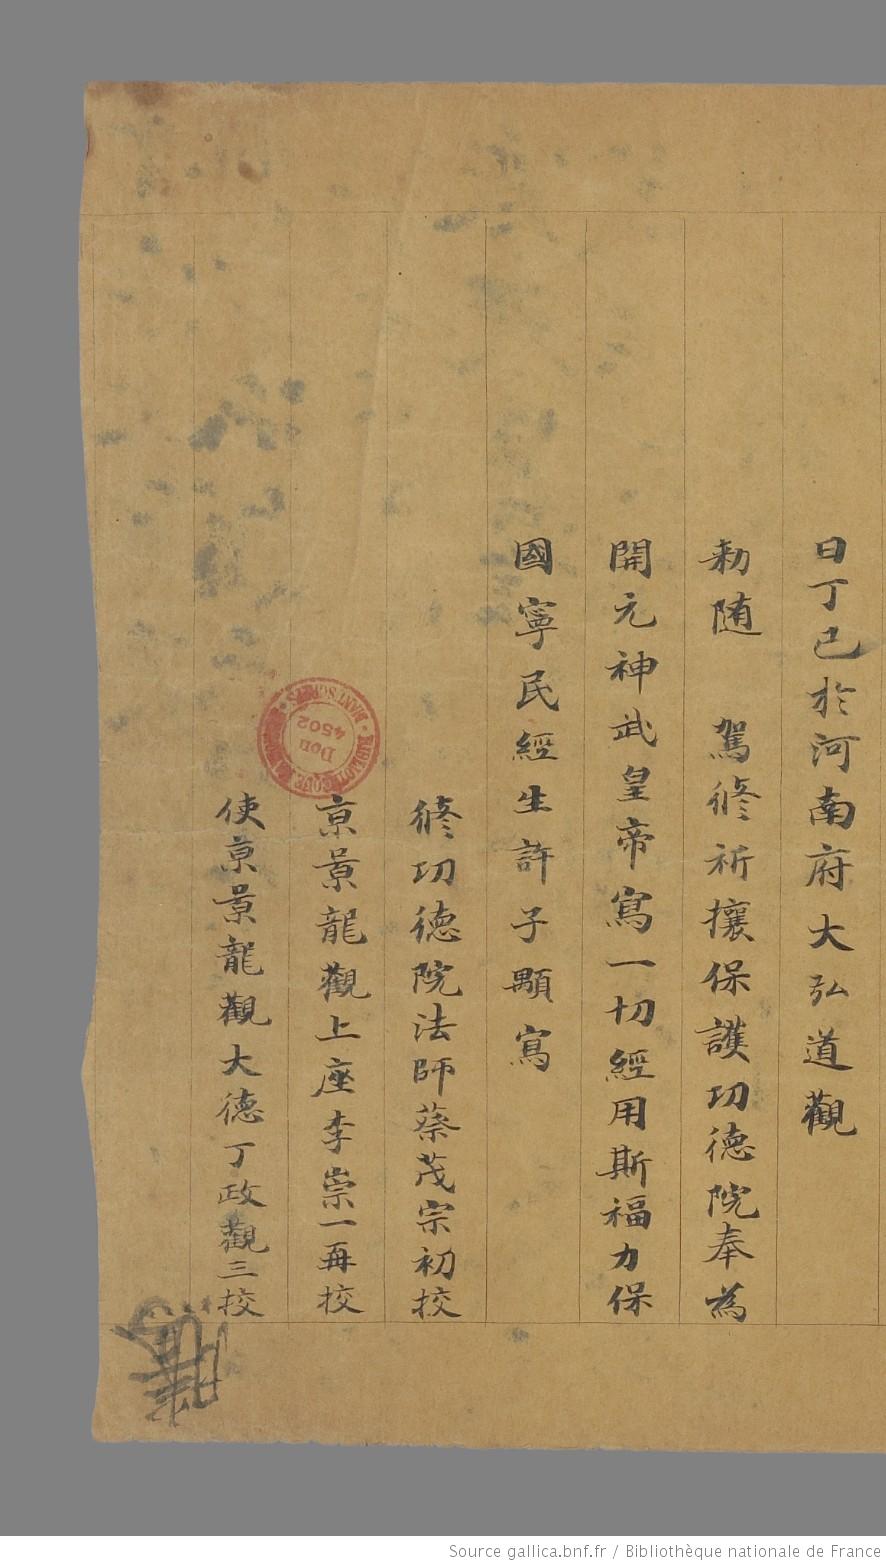 日丁巳於河南府大弘道觀
勅随 駕修祈攘保護功德院奉為
開元神武皇帝寫一切經用斯福力保
國寧民經生許子顒寫
修功德院法師蔡茂宗初挍
京景龍觀上座李崇一再挍
使京景龍觀大德丁政觀三挍
BIBLIOTHEQUE NATIONALE MANUSCRITS
Don
4502
Source gallica.bnf.fr / Bibliothèque nationale de France